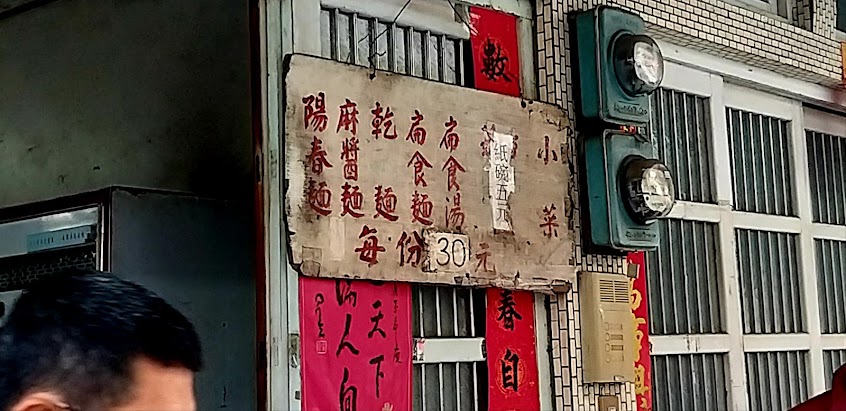 數
小菜
紙碗五元
扁食湯
扁食麵
乾麵
麻醬麵
陽春麵
每份30元
春自
天下
人自